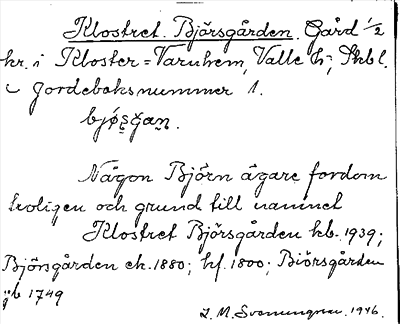 Klostret. Björsgården. Gård 1/2
hr. i Kloster = Varnhem, Valle h-, Skbl.
Jordeboksnummer 1.

Någon Björn ägare fordom
troligen och grund till namnet
Klostret Björsgården kb. 1939;
Björsgården ek. 1880; hf. 1800; Biörsgården
jb 1749
1946.